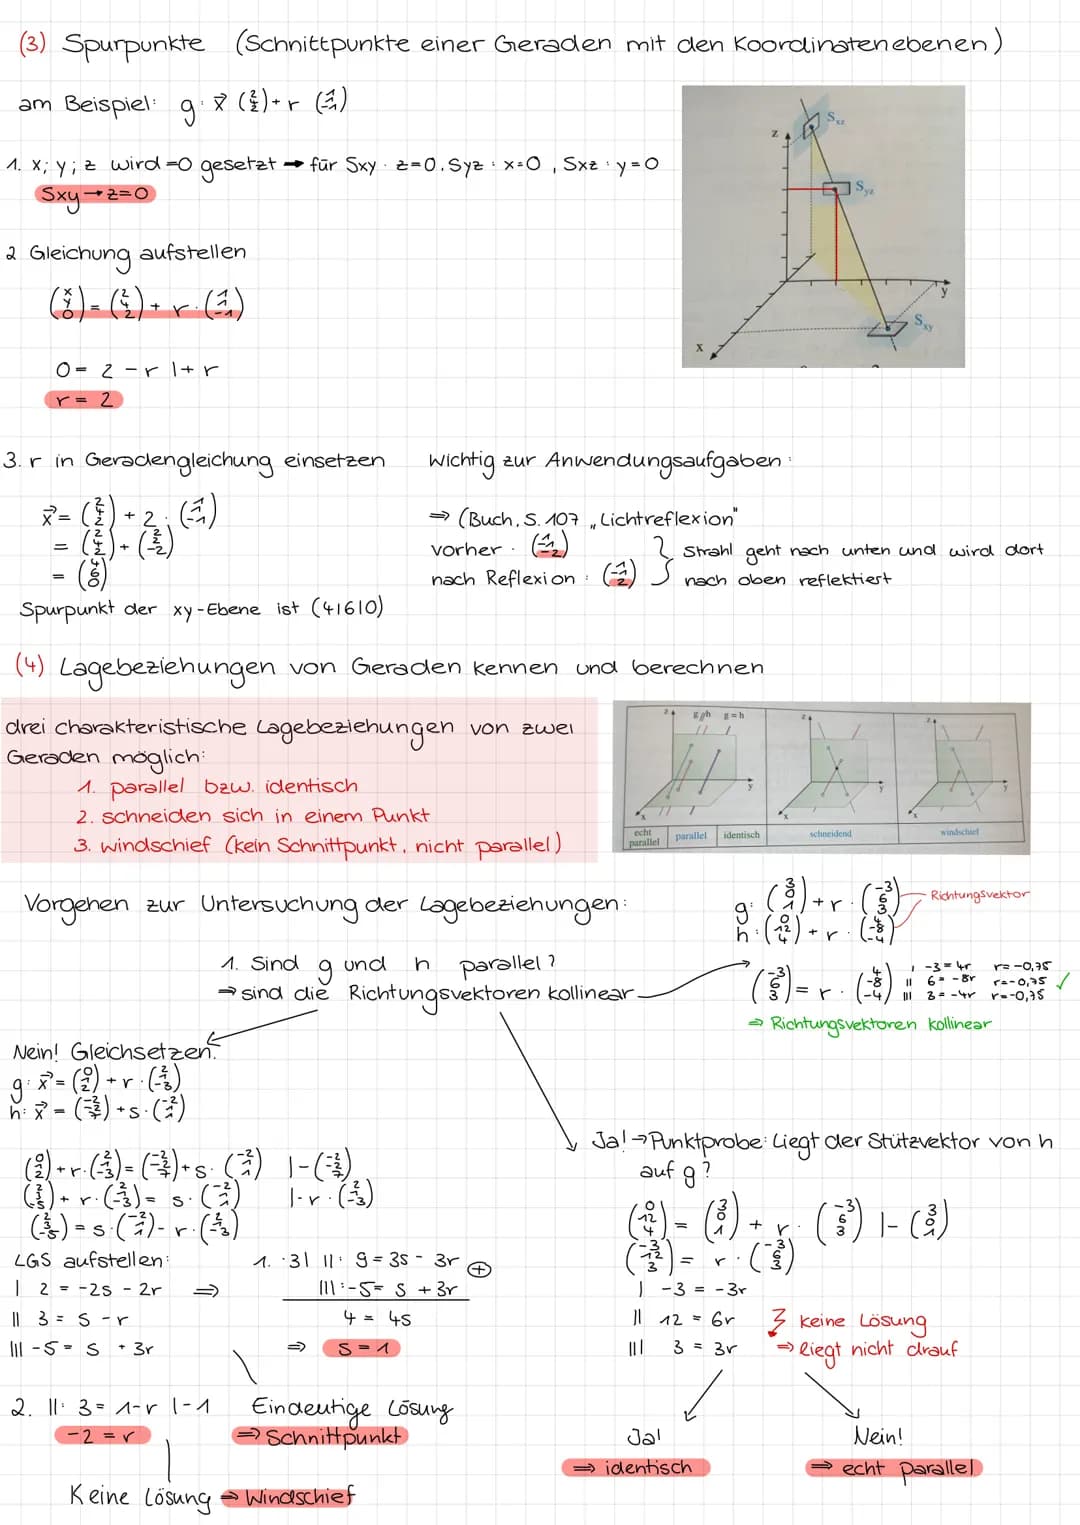 (3) Spurpunkte (Schnittpunkte einer Geraden mit den Koordinatenebenen)
am Beispiel: g: x⃗ (2 4 2) + r (1 1 -1)
1. x; y; z wird =0 gesetzt → für Sxy: z=0, Syz: x=0, Sxz: y=0
Sxy → z=0
2 Gleichung aufstellen
(x y 0) = (2 4 2) + r · (1 1 -1)
0 = 2 - r |+ r
r = 2
z
Sxz
Syz
y
Sxy
x
3. r in Geradengleichung einsetzen
x⃗ = (2 4 2) + 2 · (1 1 -1)
= (2 4 2) + (2 2 -2)
= (4 6 0)
Spurpunkt der xy-Ebene ist (4|6|0)
Wichtig zur Anwendungsaufgaben:
⇒ (Buch, S. 107 „Lichtreflexion"
vorher:
nach Reflexion:
Strahl geht nach unten und wird dort
nach oben reflektiert
(4) Lagebeziehungen von Geraden kennen und berechnen
drei charakteristische Lagebeziehungen von zwei
Geraden möglich:
1. parallel bzw. identisch
2. schneiden sich in einem Punkt
3. windschief (kein Schnittpunkt, nicht parallel)
z g∦h g=h
y
x
z
y
x
z
y
x
echt parallel
parallel
identisch
schneidend
windschief
Vorgehen zur Untersuchung der Lagebeziehungen:
g: (3 0 1) + r · (-3 6 3) Richtungsvektor
h: (0 12 4) + r · (4 -8 -4)
1. Sind g und h parallel?
⇒ sind die Richtungsvektoren kollinear
(-3 6 3) = r · (4 -8 -4)
I -3 = 4r r = -0,75
II 6 = -8r r = -0,75 ✓
III 3 = -4r r = -0,75
⇒ Richtungsvektoren kollinear
Nein! Gleichsetzen:
g: x⃗ = (0 1 2) + r · (2 1 -3)
h: x⃗ = (-2 -2 7) + s · (-2 1 1)
(0 1 2) + r · (2 1 -3) = (-2 -2 7) + s · (-2 1 1) |- (-2 -2 7)
(2 3 -5) + r · (2 1 -3) = s · (-2 1 1) |- r · (2 1 -3)
(2 3 -5) = s · (-2 1 1) - r · (2 1 -3)
LGS aufstellen:
I 2 = -2s - 2r ⇒
II 3 = s - r
III -5 = s + 3r
1. ·3| II: 9 = 3s - 3r ⊕
III: -5 = s + 3r
4 = 4s
⇒ s = 1
2. II: 3 = 1-r |-1
-2 = r
Eindeutige Lösung
⇒ Schnittpunkt
Keine Lösung ⇒ Windschief
Ja! → Punktprobe: Liegt der Stützvektor von h
auf g?
(0 12 4) = (3 0 1) + r · (-3 6 3) |- (3 0 1)
(-3 12 3) = r · (-3 6 3)
I -3 = -3r
II 12 = 6r
III 3 = 3r
keine Lösung
⇒ liegt nicht drauf
Ja!
⇒ identisch
Nein!
⇒ echt parallel